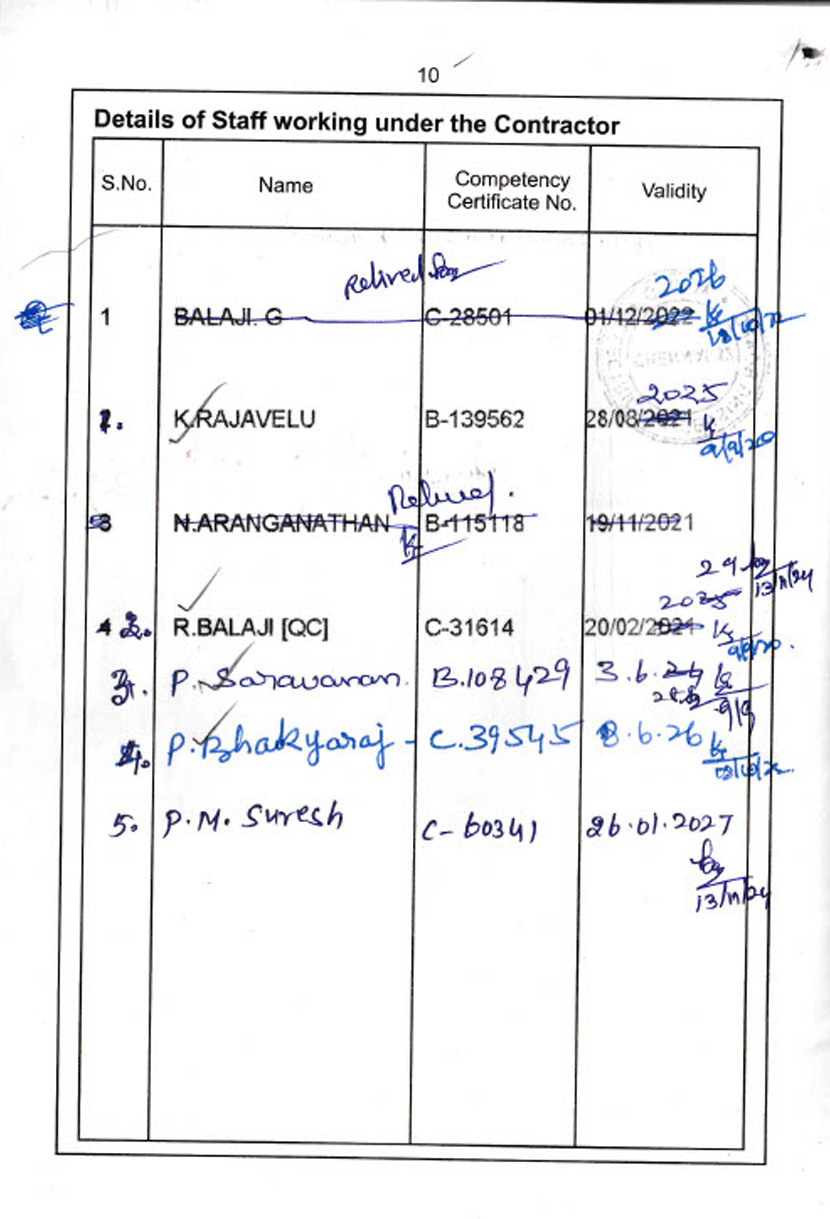 10
Details of Staff working under the Contractor
S.No. Name Competency Certificate No. Validity
Relived
2026
1 BALAJI. G C-28501 01/12/2022
2025
2. K.RAJAVELU B-139562 28/08/2021
9/9/20
Relived.
3 N.ARANGANATHAN B-115118 19/11/2021
29
13/11/24
2025
4 2. R.BALAJI [QC] C-31614 20/02/2021
9/9/20.
3. P. Saravanan. B.108429 3.6.24
9/9
4. P. Bhakyaraj - C.39545 8.6.26
5. P.M. Suresh C-60341 26.01.2027
13/11/24